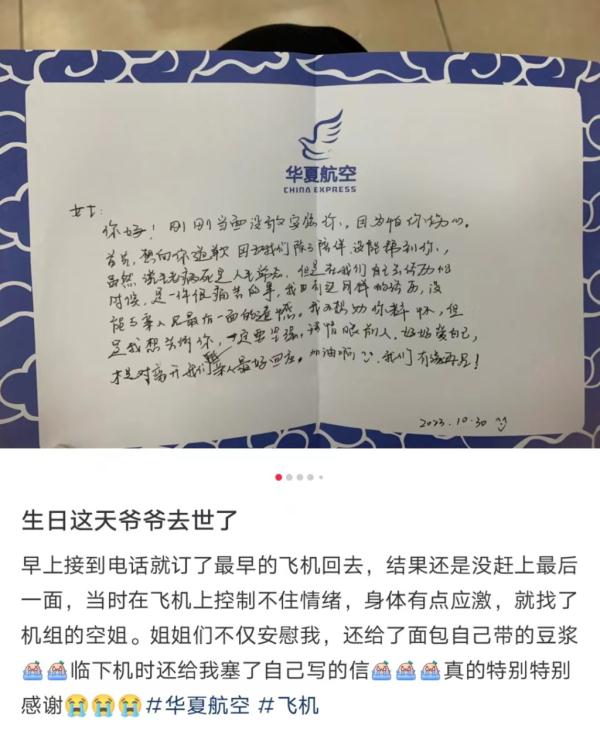 华夏航空
CHINA EXPRESS
女士：
你好！刚刚当面没敢安慰你，因为怕你伤心。
首先，想向你道歉 因为我们除了陪伴没能帮到你，
虽然 说生老病死是人之常态，但是在我们自己去经历的
时候，是一件很痛苦的事，我也有过同样的经历，没
能与亲人见最后一面的遗憾。我不想劝你释怀，但
是我想告诉你，一定要坚强，珍惜眼前人，好好爱自己，
才是对离开我们亲人最好回应。加油啊 我们有缘再见！
2023.10.30
生日这天爷爷去世了
早上接到电话就订了最早的飞机回去，结果还是没赶上最后
一面，当时在飞机上控制不住情绪，身体有点应激，就找了
机组的空姐。姐姐们不仅安慰我，还给了面包自己带的豆浆
临下机时还给我塞了自己写的信真的特别特别
感谢😭😭😭#华夏航空 #飞机